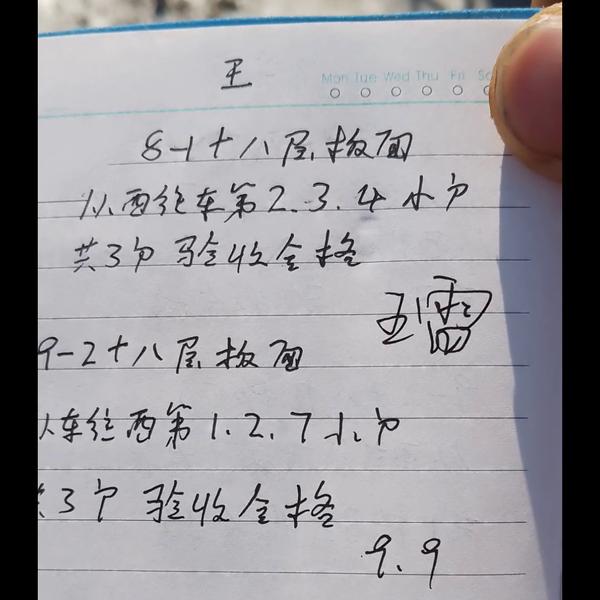 王
Mon Tue Wed Thu Fri
8-1十八层板面
从西往东第2.3.4小户
共3户 验收合格
王雷
9-2十八层板面
从东往西第1.2.7小户
共3户 验收合格
9.9